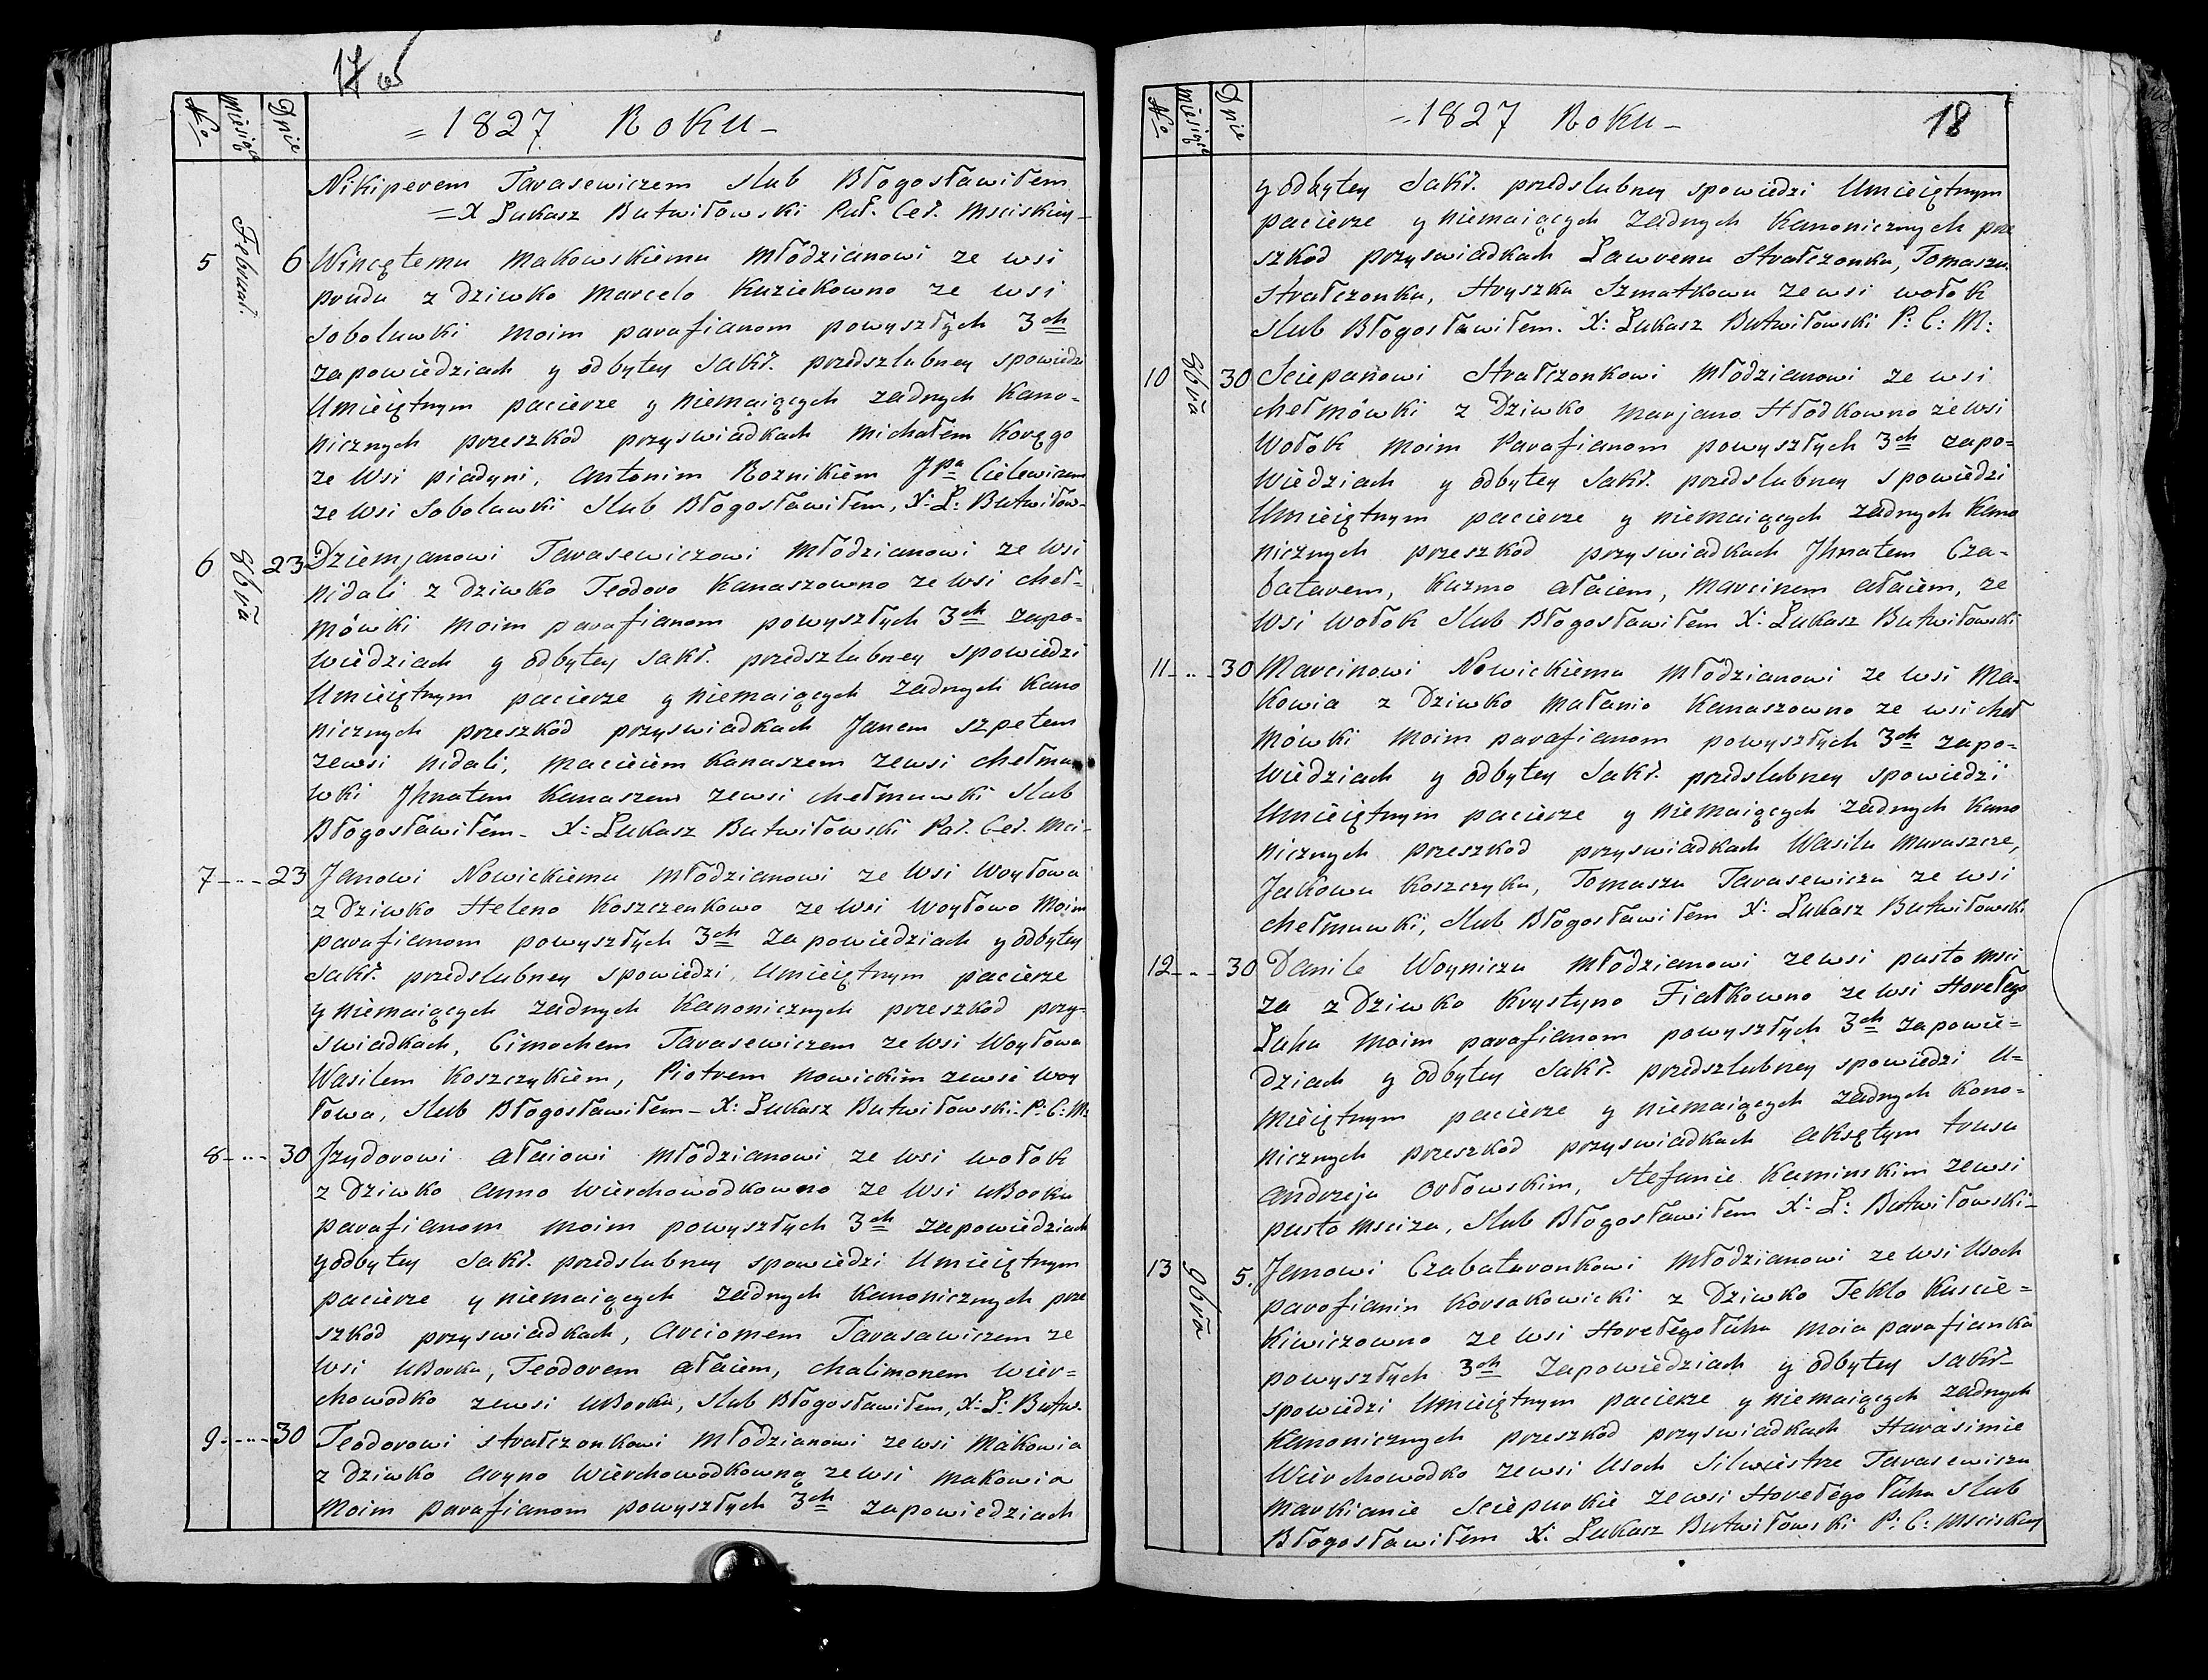 17 об
No Miesiąc Dnie = 1827. Roku -
Nikiperem Tarasewiczem slub Błogosławiłem
= X Łukasz Butwiłowski Par. Cer. Msciskiey -
5 Februar. 6 Wincętemu Makowskiemu Młodzianowi ze wsi
prudu z dziwko Marcelo Kuziekowno ze wsi
Soboluwki moim parafianom powyszłych 3ch
zapowiedziach y odbytey Sakr. przedszlubney spowiedzi
Umieiętnym pacierze y niemaiących zadnych Kano-
nicznych przeszkod przyswiadkach Michałem Koręgo
ze Wsi piadyni, Antonim Roznikiem JPa Cielewiczem
ze wsi Soboluwki Slub Błogosławiłem, X: Ł: Butwiłow-
6 8bra 23 Dziemjanowi Tarasewiczowi Młodzianowi ze wsi
Nidali z dziwko Teodoro Kanaszowno ze wsi cheł-
mówki moim parafianom powyszłych 3ch zapo-
wiedziach y odbytey Sakr. przedszlubney spowiedzi
Umieiętnym pacierze y niemaiących zadnych Kano
nicznych przeszkod przyswiadkach Janem Szpetem
zewsi Nidali, Macieiem Kanaszem zewsi chełmu
wki Jhnatem Kanaszem zewsi chełmuwki Slub
Błogosławiłem - X: Łukasz Butwiłowski Par. Cer. Mci-
7 - .. - 23 Janowi Nowickiemu Młodzianowi ze wsi Woyłowa
z Dziwko Heleno Koszczenkowo ze wsi Woyłowo Moim
parafianom powyszłych 3ch zapowiedziach y odbytey
Sakr. przedslubney spowiedzi Umieiętnym pacierze
y niemaiących zadnych Kanonicznych przeszkod przy-
swiadkach, Cimochem Tarasewiczem ze wsi Woyłowa
Wasilem Koszczykiem, Piotrem Nowickim zewsi Woy
łowa, Slub Błogosławiłem - X: Łukasz Butwiłowski P: C: M:
8 - .. - 30 Jzydorowi ałaiowi Młodzianowi ze wsi wołok
z Dziwko Anno Wierchowodkowno ze Wsi uBorku
parafianom moim powyszłych 3ch zapowiedziach
y odbytey Sakr. przedslubney spowiedzi Umieiętnym
pacierze y niemaiących zadnych Kanonicznych prze
szkod przyswiadkach, Arciomem Tarasawiczem ze
wsi uBorku, Teodorem ałaiem, chalimonem wier-
chowodko zewsi uBorku, Slub Błogosławiłem, X: Ł: Butw.
9 - .. - 30 Teodorowi strałczonkowi Młodzianowi zewsi Makowia
z dziwko Aryno Wierchowodkowną zewsi Makowia
moim parafianom powyszłych 3ch zapowiedziach
No Miesiące Dnie = 1827 Roku - 18
y odbytey Sakr. przedslubney spowiedzi Umieiętnym
pacierze y niemaiących zadnych Kanonicznych prze
szkod przyswiadkach Ławrenu Strałczonku, Tomaszu
Strałczonku, Hryszku Szmatkowu zewsi wołok
Slub Błogosławiłem. X: Łukasz Butwiłowski P: C: M:
10 8bra 30 Sciepanowi Strałczonkowi Młodzianowi ze wsi
chełmówki z Dziwko Marjano Hłodkowno zewsi
Wołok moim Parafianom powyszłych 3ch zapo=
wiedziach y odbytey Sakr. przedslubney spowiedzi
Umieiętnym pacierze y niemaiących zadnych Kano
nicznych przeszkod przyswiadkach Jhnatem Cza-
batarem, Kuzmo ałaiem, Marcinem ałaiem, ze
wsi Wołok Slub Błogosławiłem X: Łukasz Butwiłowski
11 - .. - 30 Marcinowi Nowickiemu Młodzianowi ze wsi Ma-
kowia z Dziwko Małanio Kanaszowno ze wsi cheł
mówki moim parafianom powyszłych 3ch zapo-
wiedziach y odbytey Sakr. przedslubney spowiedzi
Umieiętnym pacierze y niemaiących zadnych Kano
nicznych przeszkod przyswiadkach Wasilu Muraszcze,
Jakowu Koszczyku, Tomaszu Tarasewiczu ze wsi
chełmuwki, Slub Błogosławiłem X: Łukasz Butwiłowski
12 - .. - 30 Danile Woyniczu Młodzianowi zewsi pusto Msci
za z Dziwko Krystyno Fiałkowno ze wsi Horełego
Łuhu moim parafianom powyszłych 3ch zapowie=
dziach y odbytey Sakr. przedszlubney spowiedzi U=
mieiętnym pacierze y niemaiących zadnych Kono=
nicznych przeszkod przyswiadkach Aksętym trusu
Andrzeju Orłowskim, Stefanie Kaminskim zewsi
pusto Msciza, Slub Błogosławiłem X: Ł: Butwiłowski -
13 9bra 5. Jemowi Czabataronkowi Młodzianowi ze wsi Usoch
parofianin Korsakowicki z Dziwko Teklo Kuscie=
Kiwiczowno ze wsi Horełegołuhu moia parafianka
powyszłych 3ch zapowiedziach y odbytey Sakr-
spowiedzi Umieiętnym pacierze y niemaiących zadnych
Kanonicznych przeszkod przyswiadkach Harasimie
Wierchowodko zewsi Usoch Silwestrze Tarasewiczu
Markianie Sciepurkie zewsi Horełego łuhu Slub
Błogosławiłem X: Łukasz Butwiłowski P: C: Msciskiey